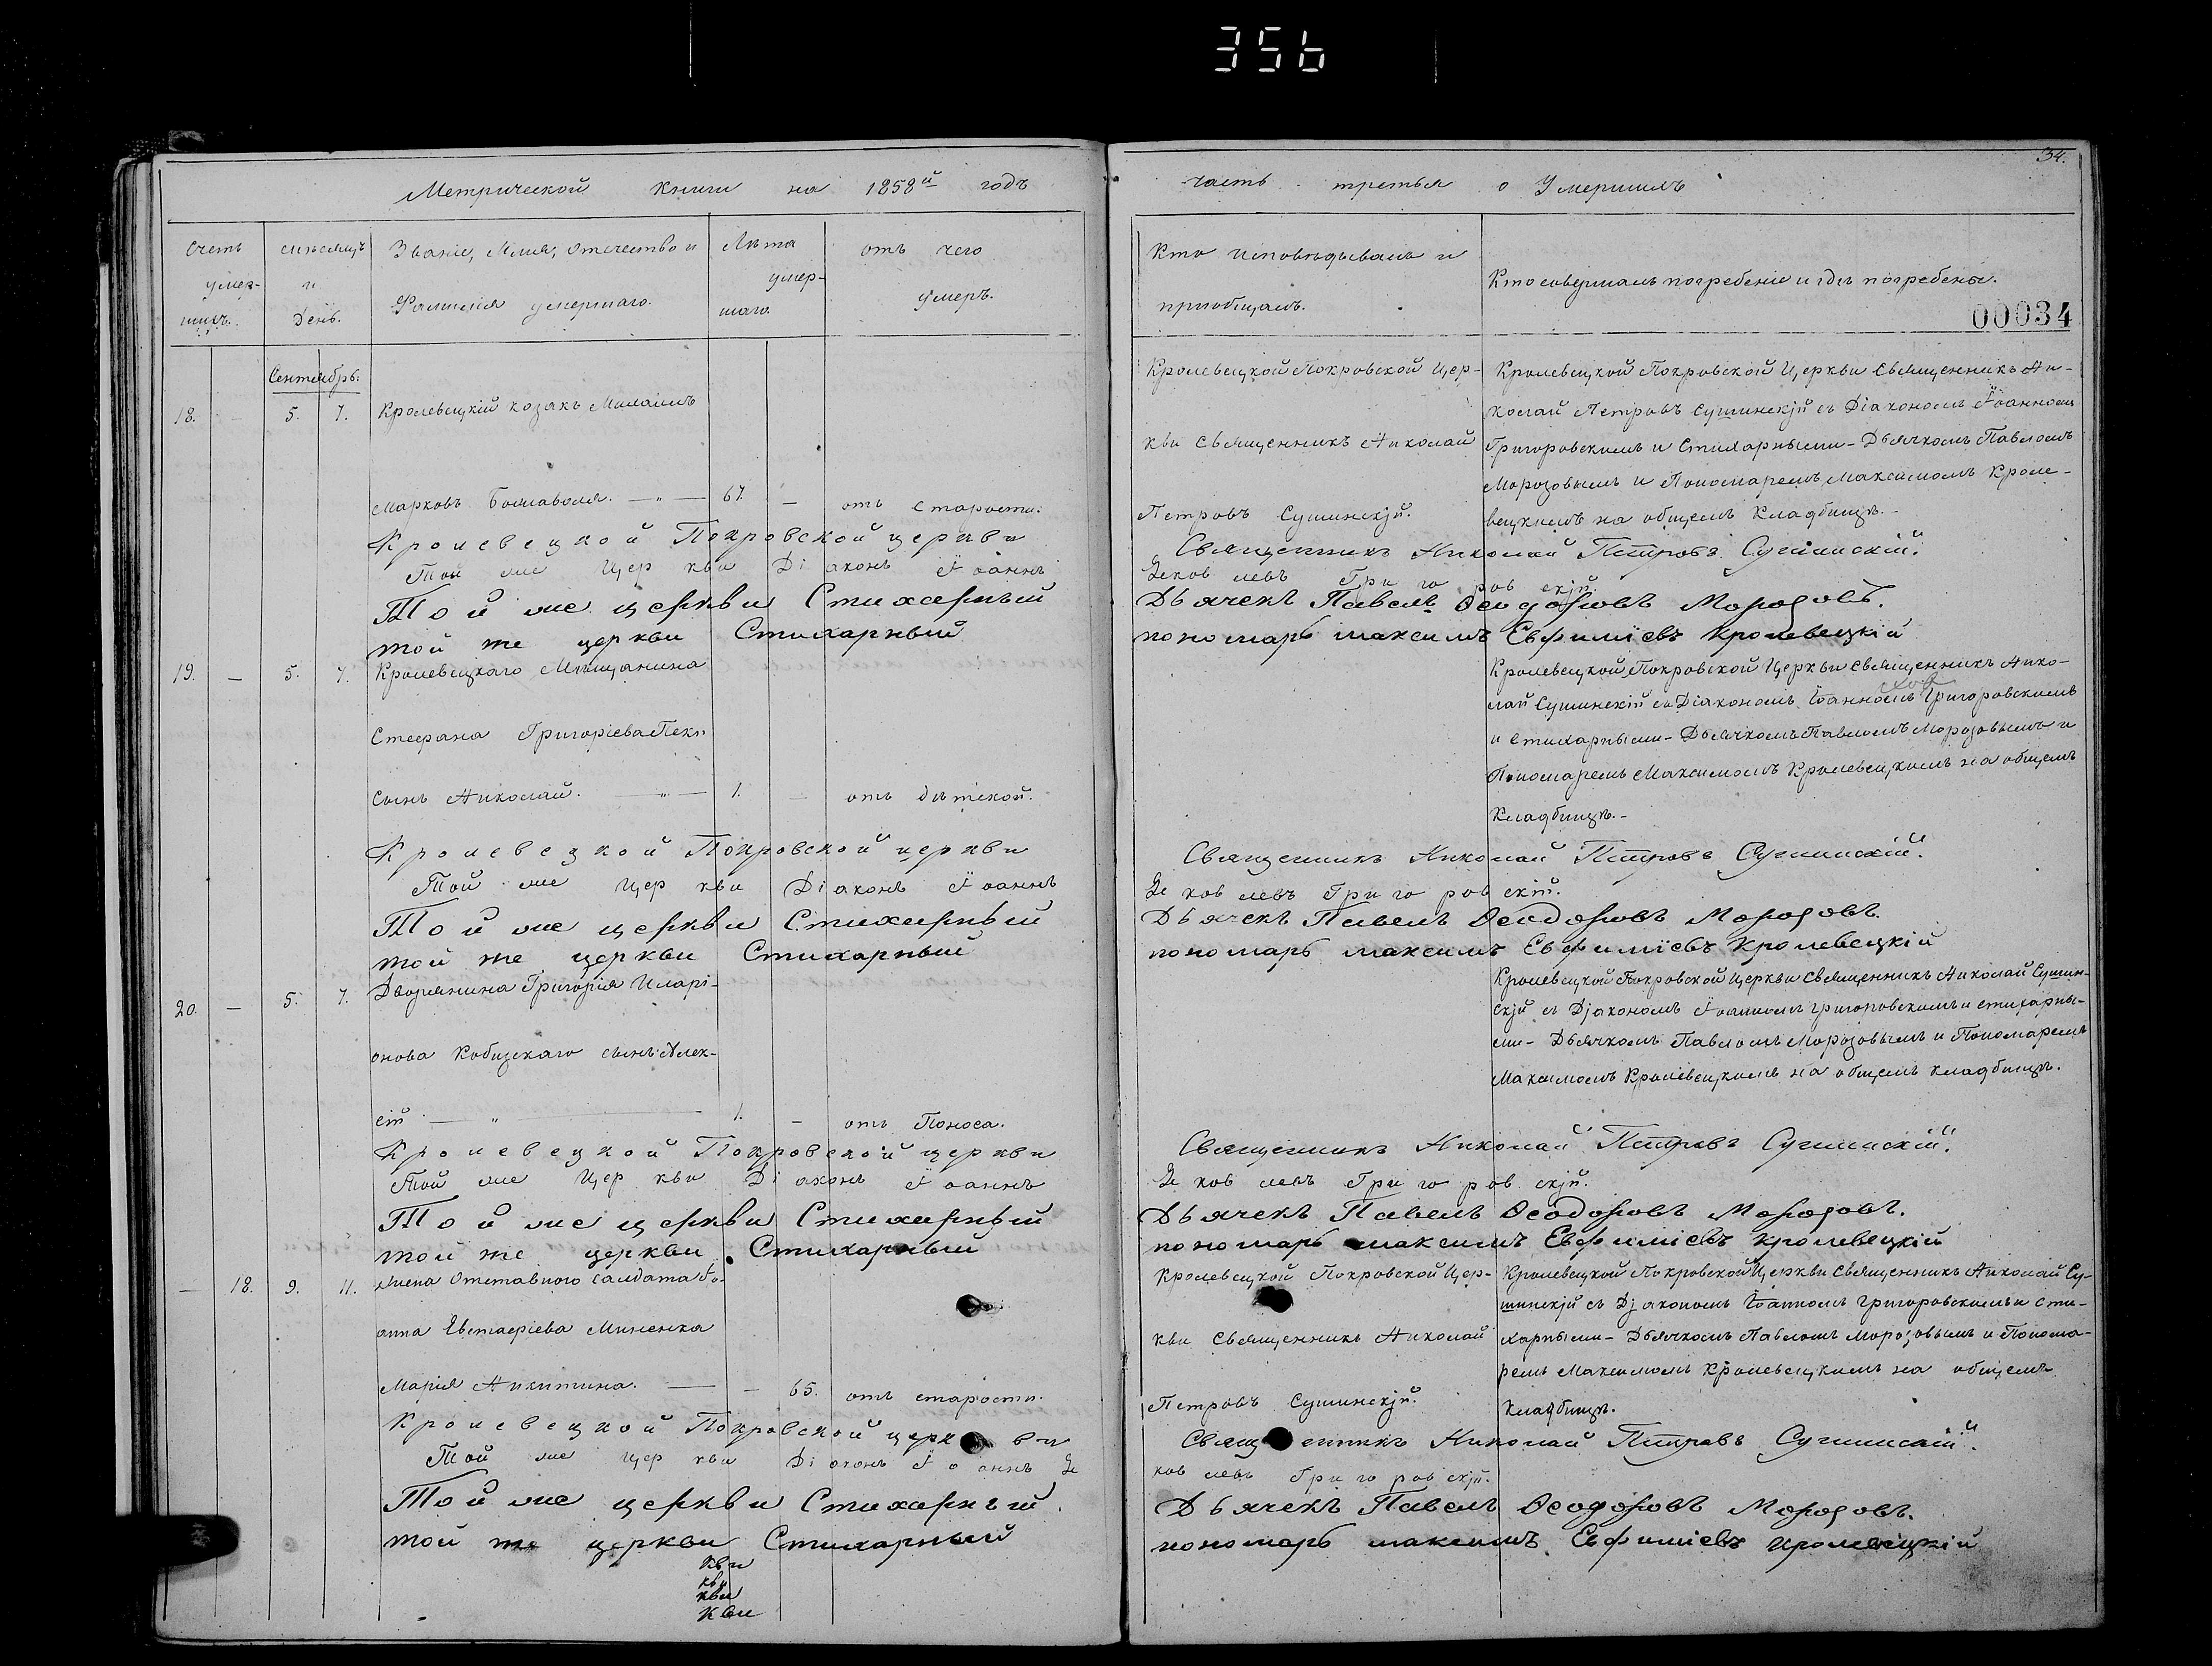 356
34.
Метрической книги на 1858й годъ
часть третья о Умершихъ
Счетъ умер-шихъ.
мѣсяцъ и День.
Званіе, Имя, Отечество и Фамилія умершаго.
Лѣта умер-шаго.
отъ чего умеръ.
Кто исповѣдывалъ и пріобщалъ.
Кто совершалъ погребеніе и гдѣ погребены.
00034
Сентябрь.
18. 5. 7. Кролевецкій козакъ Михаилъ
Марковъ —„— 67. — отъ старости.
Кролевецкой Покровской Цер-
кви Священникъ Николай
Петровъ Сушинскій.
Кролевецкой Покровской Церкви Священникъ Ни-
колай Петровъ Сушинскій съ Діакономъ Іоанномъ
Григоровскимъ и Стихарными – Дьячкомъ Павломъ
Морозовымъ и Пономаремъ Максимомъ Кроле-
вецкимъ на общемъ Кладбищѣ.
Кролевецкой Покровской церкви Священникъ Николай Петровъ Сушинскій.
Той же Церкви Діаконъ Іоаннъ Яковлевъ Григоровскій.
Той же церкви Стихарный Дьячекъ Павелъ Ѳеодоровъ Морозовъ.
той же церкви Стихарный пономарь максимъ Евфиміевъ кролевецкій
19. — 5. 7. Кролевецкаго Мѣщанина
Стефана Григоріева
сынъ Николай. —„— 1. — отъ дѣтской.
Кролевецкой Покровской Церкви Священникъ Нико-
лай Сушинскій съ Діакономъ Іоанномъ Григоровскимъ
и Стихарными – Дьячкомъ Павломъ Морозовымъ и
Пономаремъ Максимомъ Кролевецкимъ на общемъ
Кладбищѣ.–
Кролевецкой Покровской церкви Священникъ Николай Петровъ Сушинскій.
Той же Церкви Діаконъ Іоаннъ Яковлевъ Григоровскій.
Той же церкви Стихарный Дьячекъ Павелъ Ѳеодоровъ Морозовъ.
той же церкви Стихарный пономарь максимъ Евфиміевъ кролевецкій
20. — 5. 7. Дворянина Григорія Иларі-
онова Кобизскаго сынъ Алек-
сій —„— 1. — отъ Поноса.
Кролевецкой Покровской Церкви Священникъ Николай Сушин-
скій съ Діакономъ Іоанномъ Григоровскимъ и стихарны-
ми – Дьячкомъ Павломъ Морозовымъ и Пономаремъ
Максимомъ Кролевецкимъ на общемъ кладбищѣ.
Кролевецкой Покровской церкви Священникъ Николай Петровъ Сушинскій.
Той же Церкви Діаконъ Іоаннъ Яковлевъ Григоровскій.
Той же церкви Стихарный Дьячекъ Павелъ Ѳеодоровъ Морозовъ.
той же церкви Стихарный пономарь максимъ Евфиміевъ кролевецкій
— 18. 9. 11. Жена Отставного Салдата Іо-
анна Евстафіева Миненка
Марія Никитина. — — 65. отъ старости.
Кролевецкой Покровской Цер-
кви Священникъ Николай
Петровъ Сушинскій.
Кролевецкой Покровской Церкви Священникъ Николай Су-
шинскій съ Діакономъ Іоанномъ Григоровскимъ и Сти-
харными – Дьячкомъ Павломъ Морозовымъ и Понома-
ремъ Максимомъ Кролевецкимъ на общемъ
Кладбищѣ.
Кролевецкой Покровской церкви Священникъ Николай Петровъ Сушинскій.
Той же Церкви Діаконъ Іоаннъ Яковлевъ Григоровскій.
Той же церкви Стихарный Дьячекъ Павелъ Ѳеодоровъ Морозовъ.
той же церкви Стихарный пономарь максимъ Евфиміевъ кролевецкій
кви
кви
кви
кви